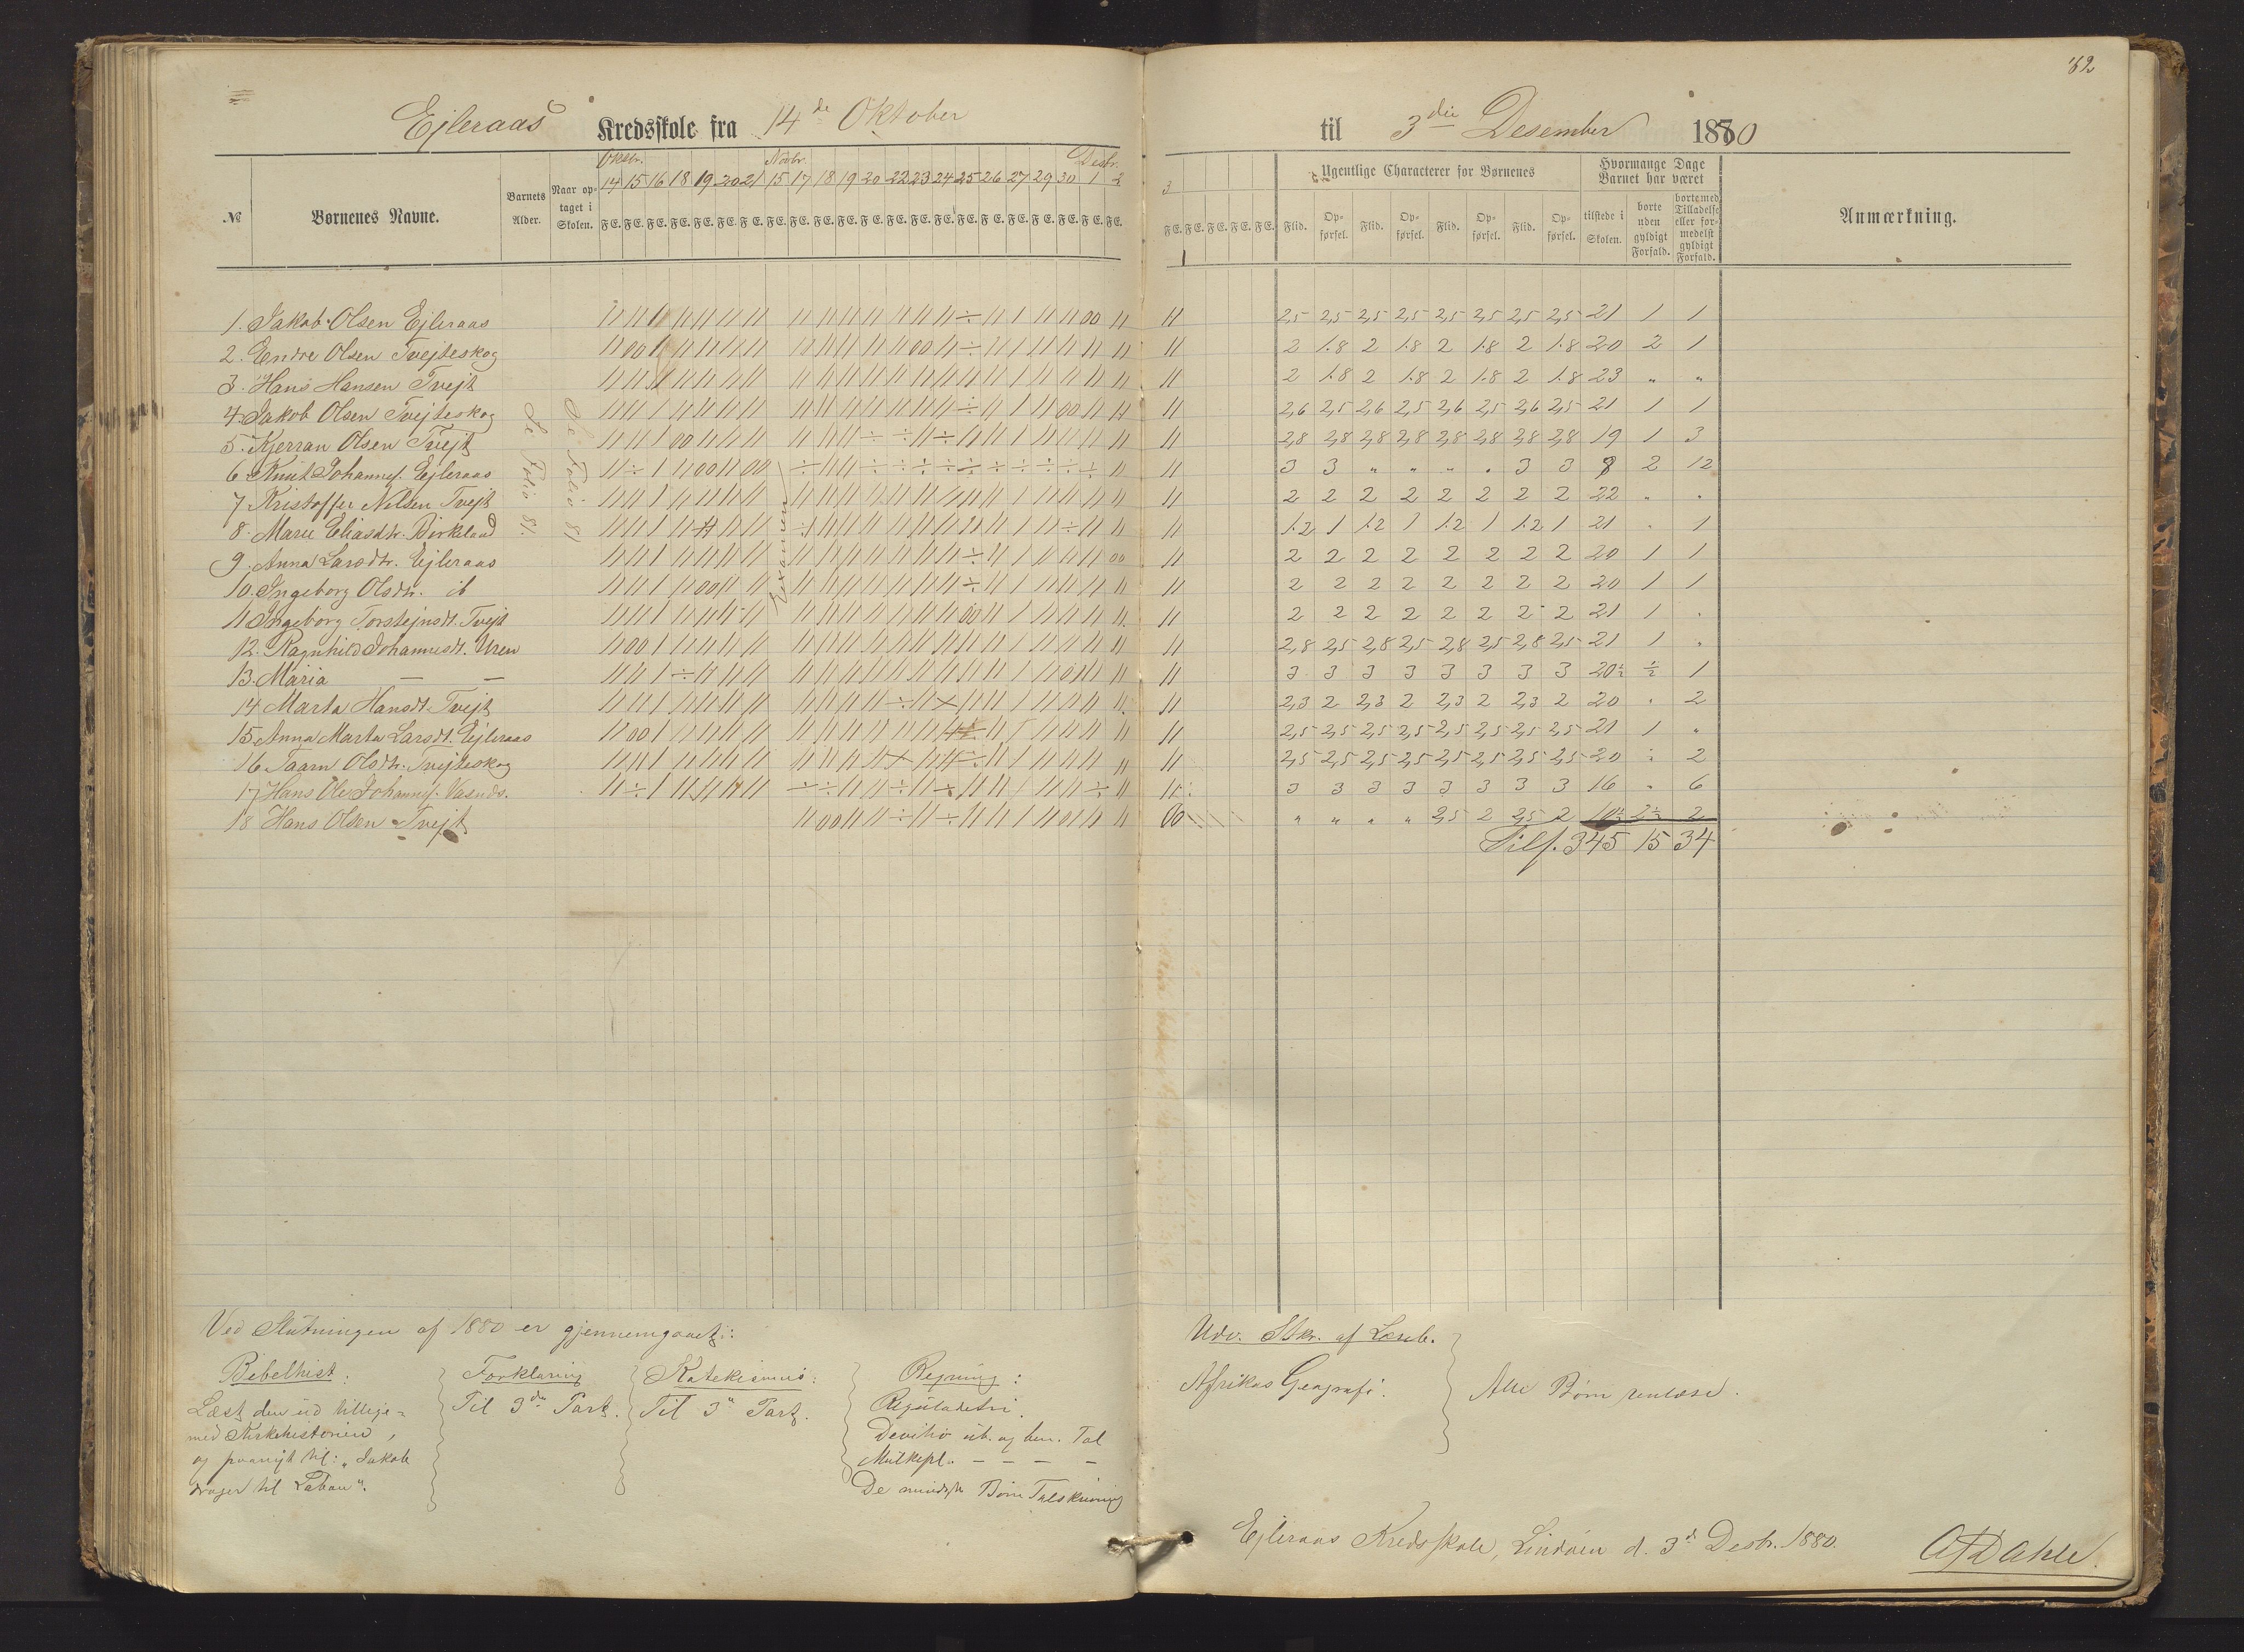 82
Ejleraas Kredsskole fra 14de Oktober til 3die Desember 1880
Oktbr. Novbr. Desbr.
14 15 16 18 19 20 21 15 17 18 19 20 22 23 24 25 26 27 29 30 1 2 3
№ Børnenes Navne. Barnets Alder. Naar optaget i Skolen. F E. F E. F E. F E. F E. F E. F E. F E. F E. F E. F E. F E. F E. F E. F E. F E. F E. F E. F E. F E. F E. F E.
F E. F E. F E. F E. F E. Ugentlige Characterer for Børnenes Hvormange Dage Barnet har været Anmærkning.
Flid. Opførsel. Flid. Opførsel. Flid. Opførsel. Flid. Opførsel. tilstede i Skolen. borte uden gyldigt Forfald. borte med Tilladelse eller formedelst gyldigt Forfald.
Se Folio 81.
Se Folio 81
Examen
1. Jakob Olsen Ejleraas 2,5 2,5 2,5 2,5 2,5 2,5 2,5 2,5 21 1 1
2. Endre Olsen Tvejteskog 2 1.8 2 1.8 2 1.8 2 1.8 20 2 1
3. Hans Hansen Tvejt 2 1.8 2 1.8 2 1.8 2 1.8 23 „ „
4. Jakob Olsen Tvejteskog 2,6 2,5 2,6 2,5 2,6 2,5 2,6 2,5 21 1 1
5. Kjerran Olsen Tvejt 2,8 2,8 2,8 2,8 2,8 2,8 2,8 2,8 19 1 3
6. Knut Johannes. Ejleraas 3 3 „ „ „ „ 3 3 8 2 12
7 Kristoffer Nilsen Tvejt 2 2 2 2 2 2 2 2 22 „ „
8. Marie Eliasdtr. Birkeland 1.2 1 1.2 1 1.2 1 1.2 1 21 „ 1
9. Anna Larsdtr. Ejleraas 2 2 2 2 2 2 2 2 20 1 1
10. Ingeborg Olsdtr. ib 2 2 2 2 2 2 2 2 20 1 1
11 Ingeborg Torstejnsdt. Tvejt 2 2 2 2 2 2 2 2 21 1 „
12. Ragnhild Johannesdt. Uren 2,8 2,5 2,8 2,5 2,8 2,5 2,8 2,5 21 1 „
13. Maria — — 3 3 3 3 3 3 3 3 20½ ½ 1
14 Marta Hansdt. Tvejt 2,3 2 2,3 2 2,3 2 2,3 2 20 „ 2
15 Anna Marta Larsdt. Ejleraas 2,5 2,5 2,5 2,5 2,5 2,5 2,5 2,5 21 1 „
16 Olsdtr. Tvejteskog 2,5 2,5 2,5 2,5 2,5 2,5 2,5 2,5 20 „ 2
17 Hans Ole Johannes. 3 3 3 3 3 3 3 3 16 „ 6
18 Hans Olsen Tvejt „ „ „ „ 2,5 2 2,5 2 10½ 2½ 2
Tils. 345 15 34
Ved Slutningen af 1880 er gjennemgaaet:
Bibelhist.:
Læst den ud tillige-
med Kirkehistorien,
og paanyt til: „Jakob
drager til Laban“.
Forklaring
Til 3die Part.
Katekismus:
Til 3die Part.
Regning:
Reguladetri.
Divition ub. og ben. Tal
Multipl. — — — —
De mindste Børn Talskrivning
Udv. Stkr. af Læseb.
Afrikas Geografi.
Alle Børn renlæse.
Ejleraas Kredsskole, Lindøen d. 3d Desbr. 1880.
Dahle.